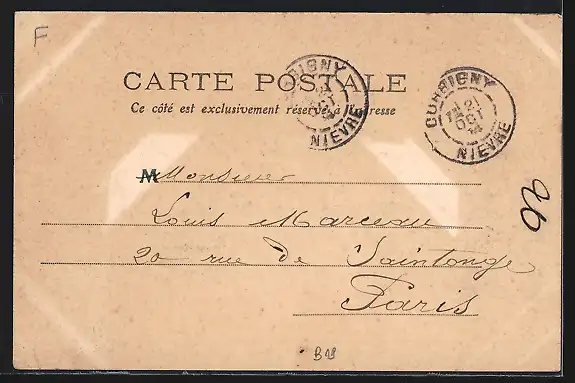 F
CARTE POSTALE
Ce côté est exclusivement réservé à l'adresse
CORBIGNY
OCT
NIEVRE
CORBIGNY
21
OCT
NIEVRE
M Monsieur
Louis Marceau
20 rue de Saintonge
Paris
26